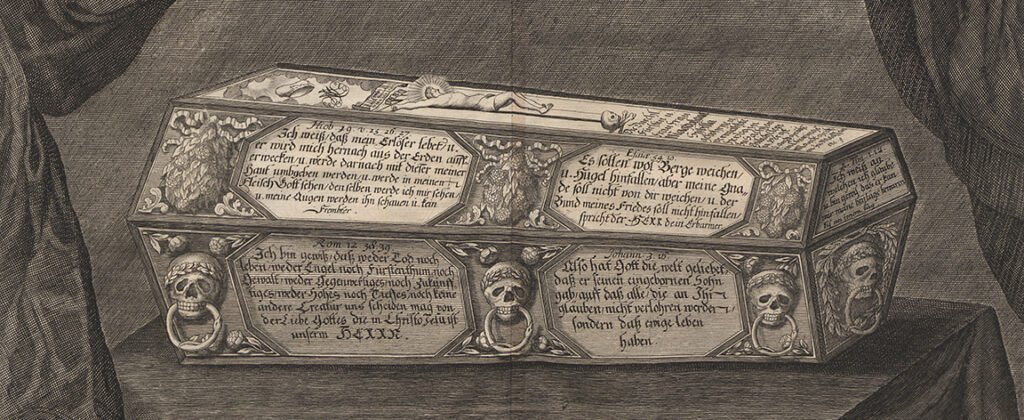 Hiob 19. v. 25 26 27
Ich weiß/ daß mein Erlöser lebet/ u.
er wird mich hernach aus der Erden auff
erwecken/ u. werde darnach mit dieser meiner
Haut umbgeben werden/ u. werde in meinen
Fleisch Gott sehen/ denselben werde ich mir sehen
u. meine Augen werden ihn schauen u. kein
Frembter.
Esaie 54.
Es sollen wol Berge weichen/
u. Hügel hinfallen/ aber meine Gna,
de soll nicht von dir weichen/ u. der
Bund meines Friedes soll nicht hinfallen/
spricht der HERR dein Erbarmer
Ich weiß an
welchen ich glaube
bin gewiß daß er kan
mir meine beylage bewahren
an jenen Tag
Rom 12 38 39
Ich bin gewiß/ daß weder Tod noch
leben/ weder Engel noch Fürstenthum noch
Gewalt/ weder Gegenwertiges/ noch Zukunff,
tiges/ weder Hohes noch Tieffes/ noch keine
andere Creatur uns scheiden mag von
der Liebe Gottes die in Christo Jesu ist
unserm HERRN.
Johann 3.
Also hat Gott die welt geliebet,
daß er seinen eingebornen Sohn
gab/ auf daß alle/ die an Ihn
glauben/ nicht verlohren werden
sondern daß ewige leben
haben.